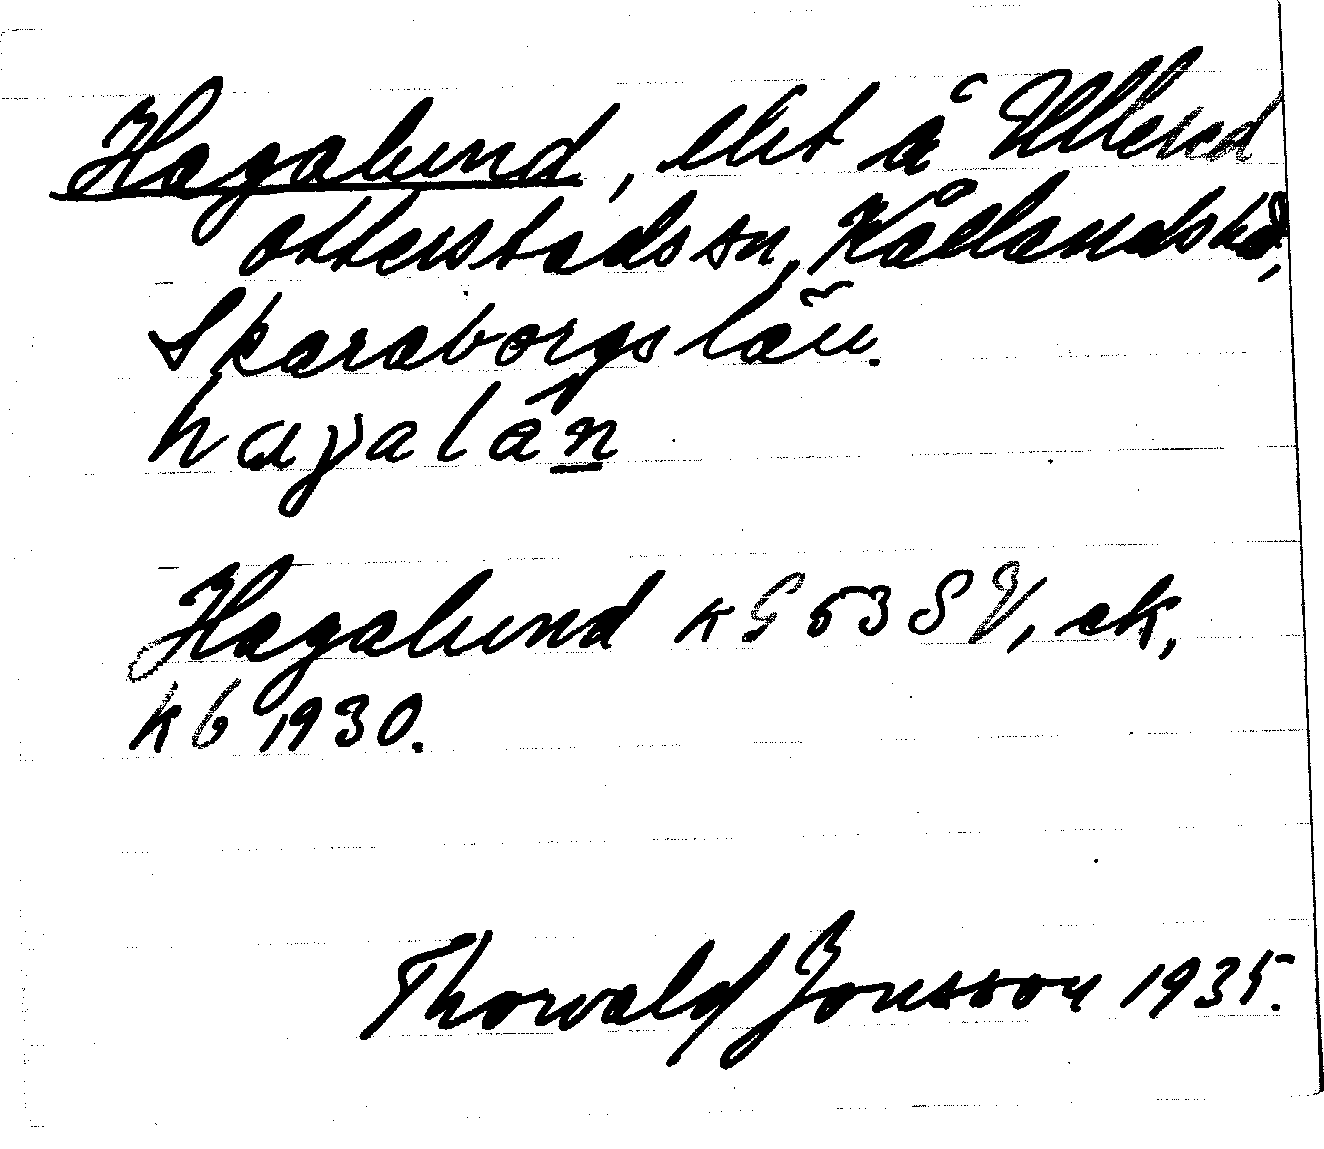 Hagalund, slut å Ullersd
Otterstads sn, Kållands hd,
Skaraborgs län.
hagalán
Hagalund KG 53 SV, ek,
kb 1930.
Thorvald Jonsson 1935.